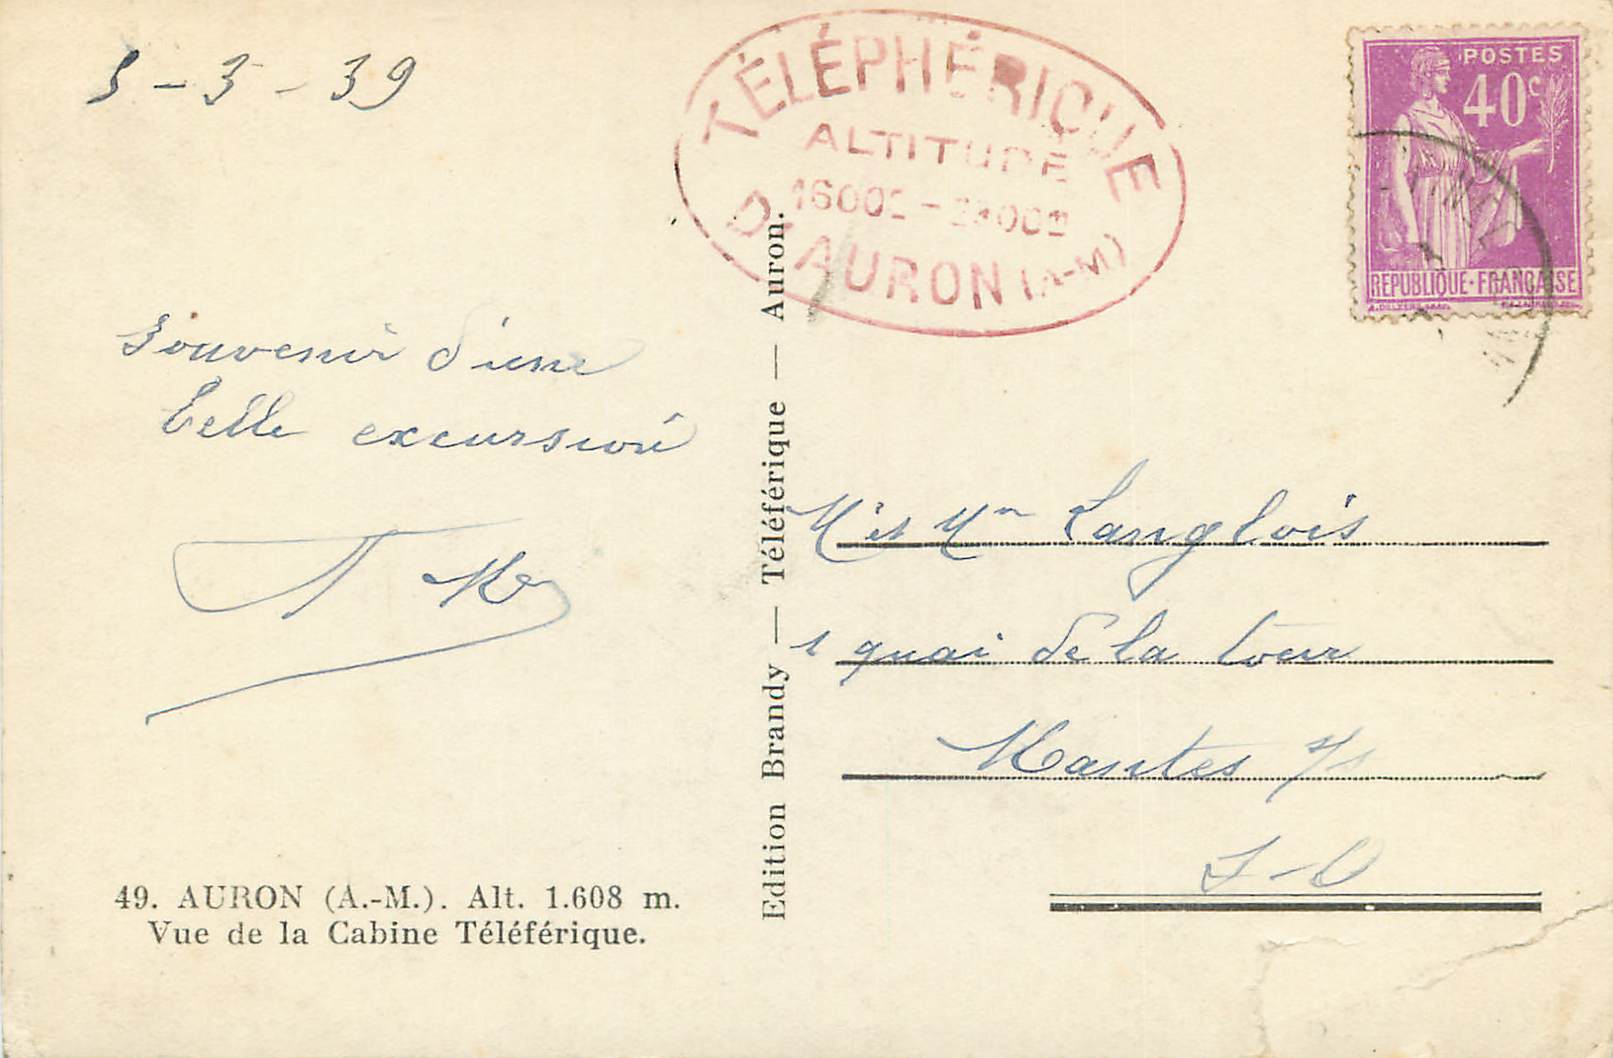 5-3-39
TÉLÉPHÉRIQUE
ALTITUDE
D'AURON (A-M)
POSTES
40c
REPUBLIQUE·FRANÇAISE
Souvenir d'une
belle excursion
Mr et Mme Langlois
1 quai de la tour
Mantes s/s
S-O
Edition Brandy — Téléférique — Auron.
49. AURON (A.-M.). Alt. 1.608 m.
Vue de la Cabine Téléférique.